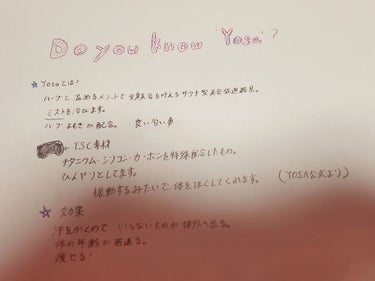 Do you know "Yosa"?
☆ Yosaとは?
ハーブで温めるメソットで全新代謝を叶えるサウナ型美容促進器具。
ミストを浴びます。
ハーブ・よもぎが配合。良い匂い
← TSC素材
チタニウム・シリコン・カーボンを特殊配合したもの。
ひんやりとしてます。
振動するみたいで、体をほぐしてくれます。 (YOSA公式より)
☆ 効果
汗をかくので いらないものが体外へ出る。
体の年齢が若返る。
痩せる!